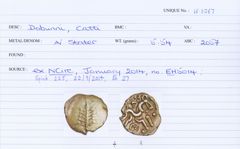 UNIQUE No.
DESC : Dobunni, Catti BMC : VA :
METAL/DENOM : AV Stater WT (grams) : 5.54 ABC : 2057
FOUND :
SOURCE : ex NCirc, January 2014, no. EH5014.